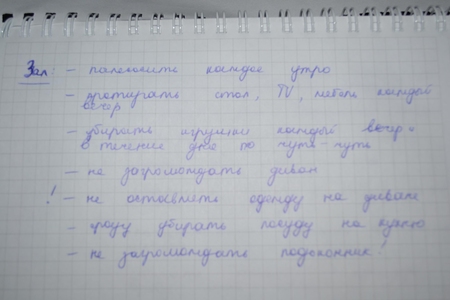 Зал: – пылесосить каждое утро
– протирать стол, TV, мебель каждый
вечер
– убирать игрушки каждый вечер и
в течение дня по чуть-чуть
– не загромождать диван
! – не оставлять одежду на диване
– сразу убирать посуду на кухню
– не загромождать подоконник!